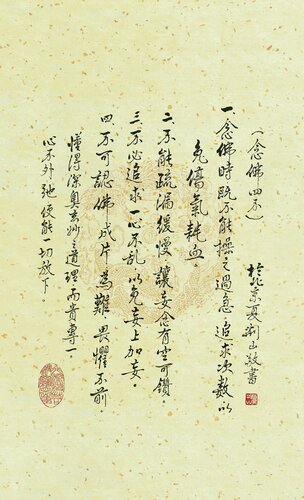 (念佛四不)
於北京夏荆山敬書
一、念佛時既不能操之過急，追求次數以
免傷氣耗血。
二、不能疏漏緩慢讓妄念有空可鑽。
三、不必追求一心不乱以免妄上加妄。
四、不可認佛成片為難畏懼不前。
懂得深奥玄妙之道理而貴專一
心不外馳便能一切放下。